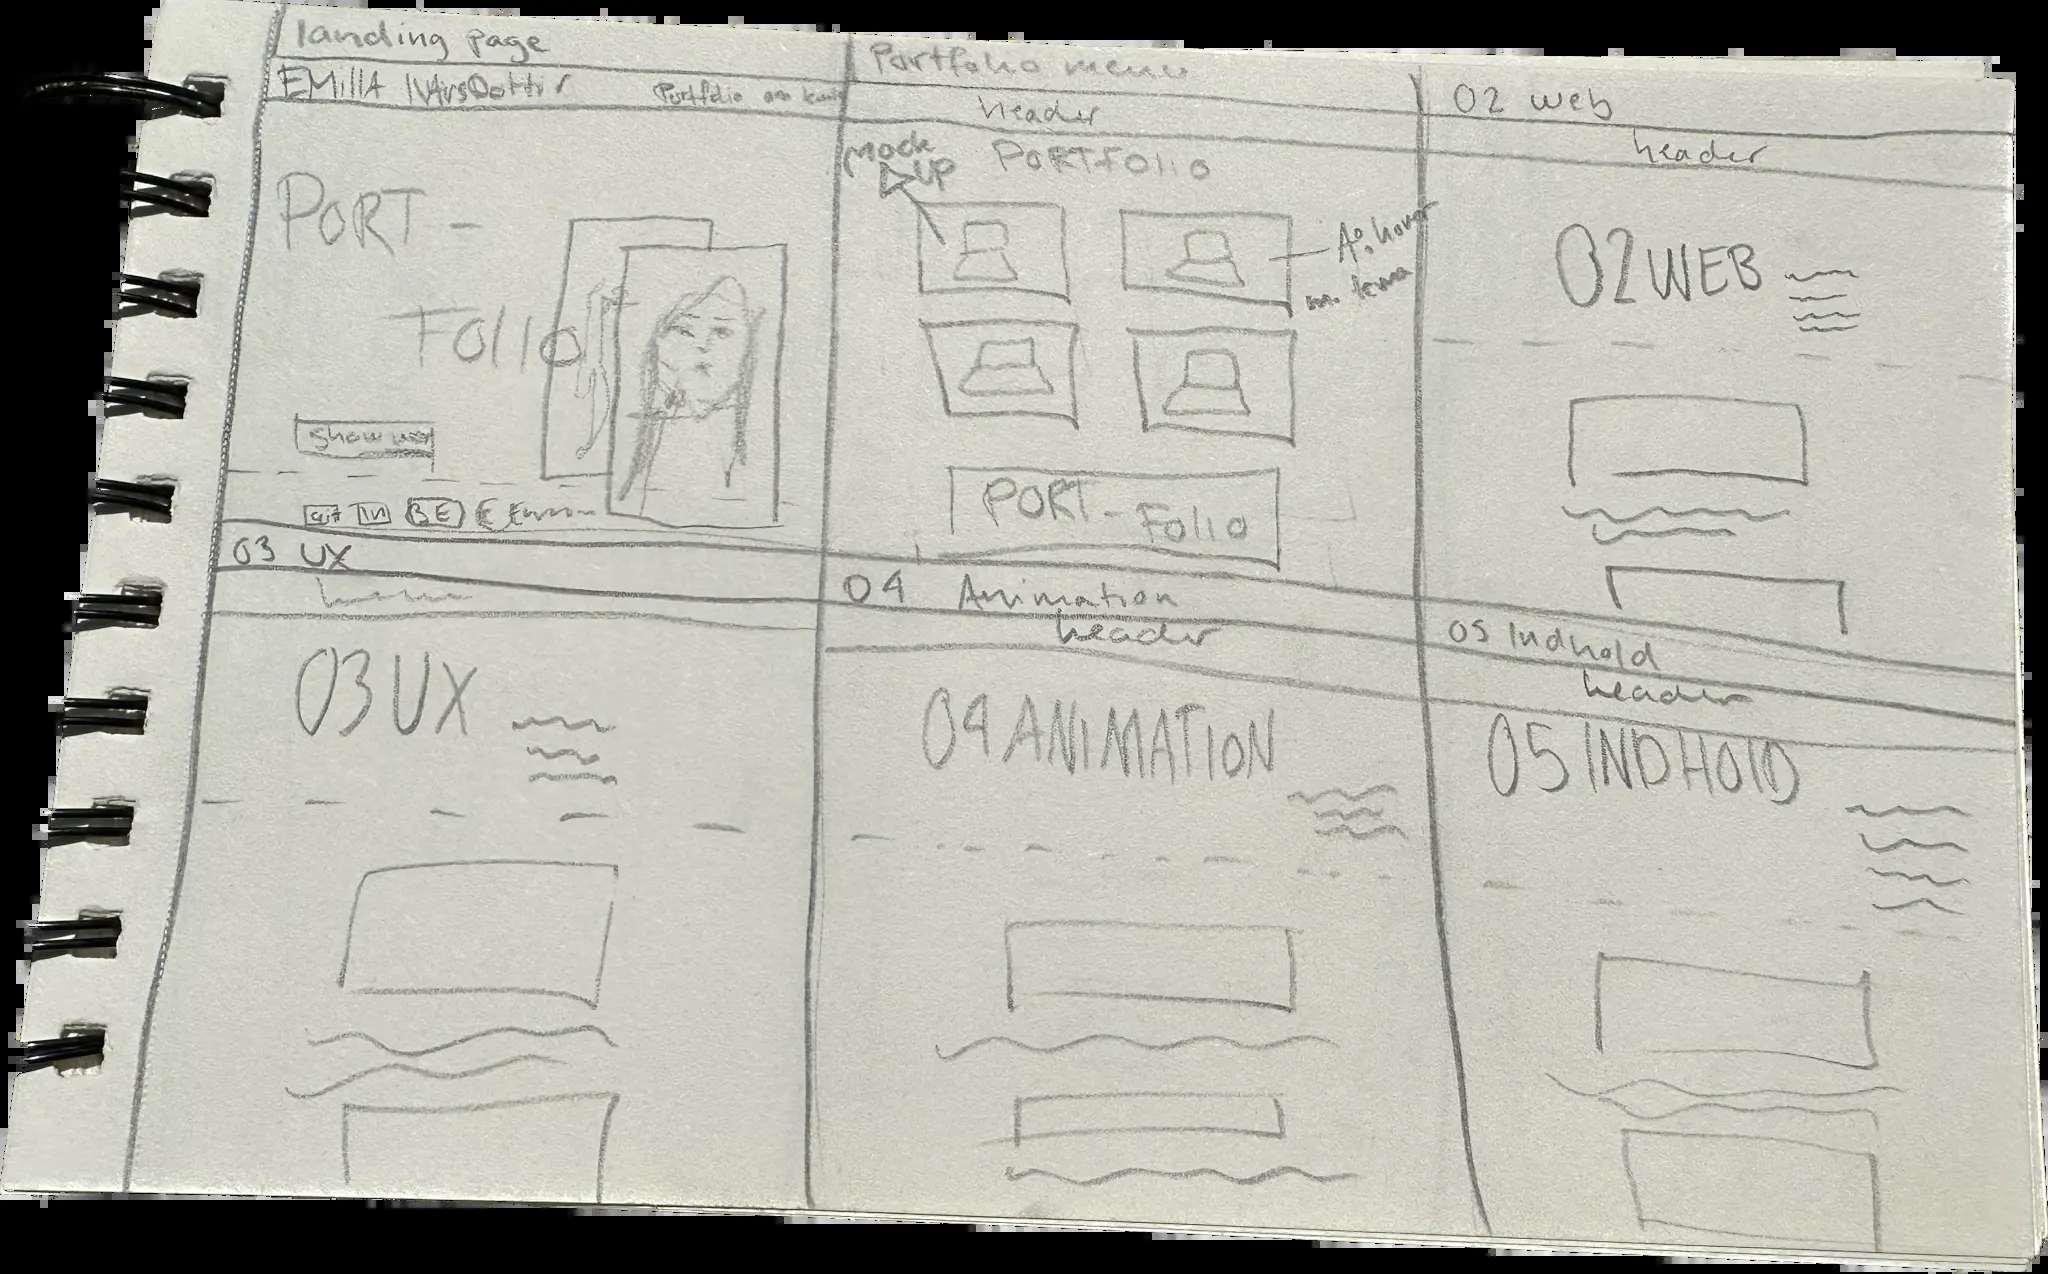 landing page
EMillA IVArsDottir
Portfolio
PORT -
Folio
show
Git IN BE
Portfolio menu
header
Mock UP
PORTFOLIO
PORT - Folio
02 web
header
02 WEB
03 UX
03 UX
04 Animation
header
04 ANIMATION
05 Indhold
header
05 INDHOlD